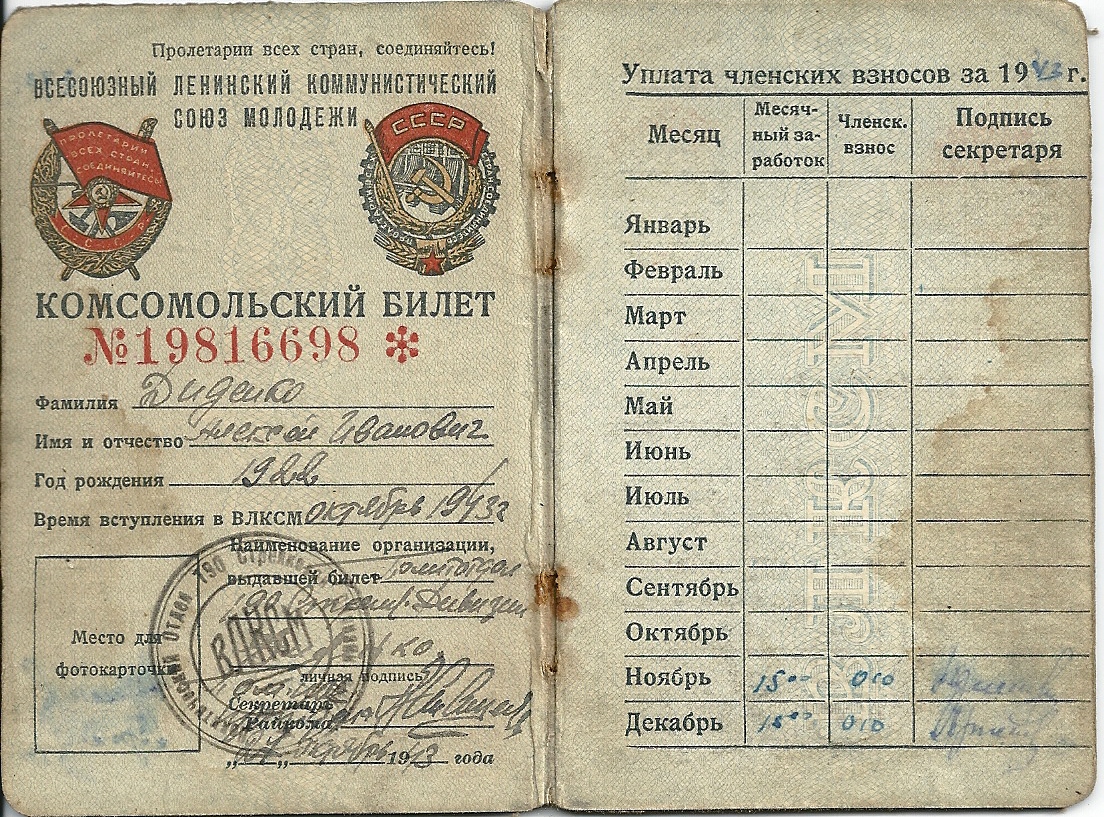 Пролетарии всех стран, соединяйтесь!
ВСЕСОЮЗНЫЙ ЛЕНИНСКИЙ КОММУНИСТИЧЕСКИЙ
СОЮЗ МОЛОДЕЖИ
ПРОЛЕТАРИИ
ВСЕХ СТРАН,
СОЕДИНЯЙТЕСЬ!
СССР
СССР
КОМСОМОЛЬСКИЙ БИЛЕТ
№19816698 *
Фамилия Диденко
Имя и отчество Алексей Иванович
Год рождения 1922
Время вступления в ВЛКСМ октябрь 1943г
Наименование организации,
выдавшей билет Политотдел
190 Стрелк. Дивизии
190 Стрелк
ВЛКСМ
Место для
фотокарточки
личная подпись
Секретарь
Райкома
октябрь 1943 года
Уплата членских взносов за 1943 г.
Месяц
Месяч-
ный за-
работок
Членск.
взнос
Подпись
секретаря
Январь
Февраль
Март
Апрель
Май
Июнь
Июль
Август
Сентябрь
Октябрь
Ноябрь 15 00 0 10
Декабрь 15 00 0 10
ВЛКСМ